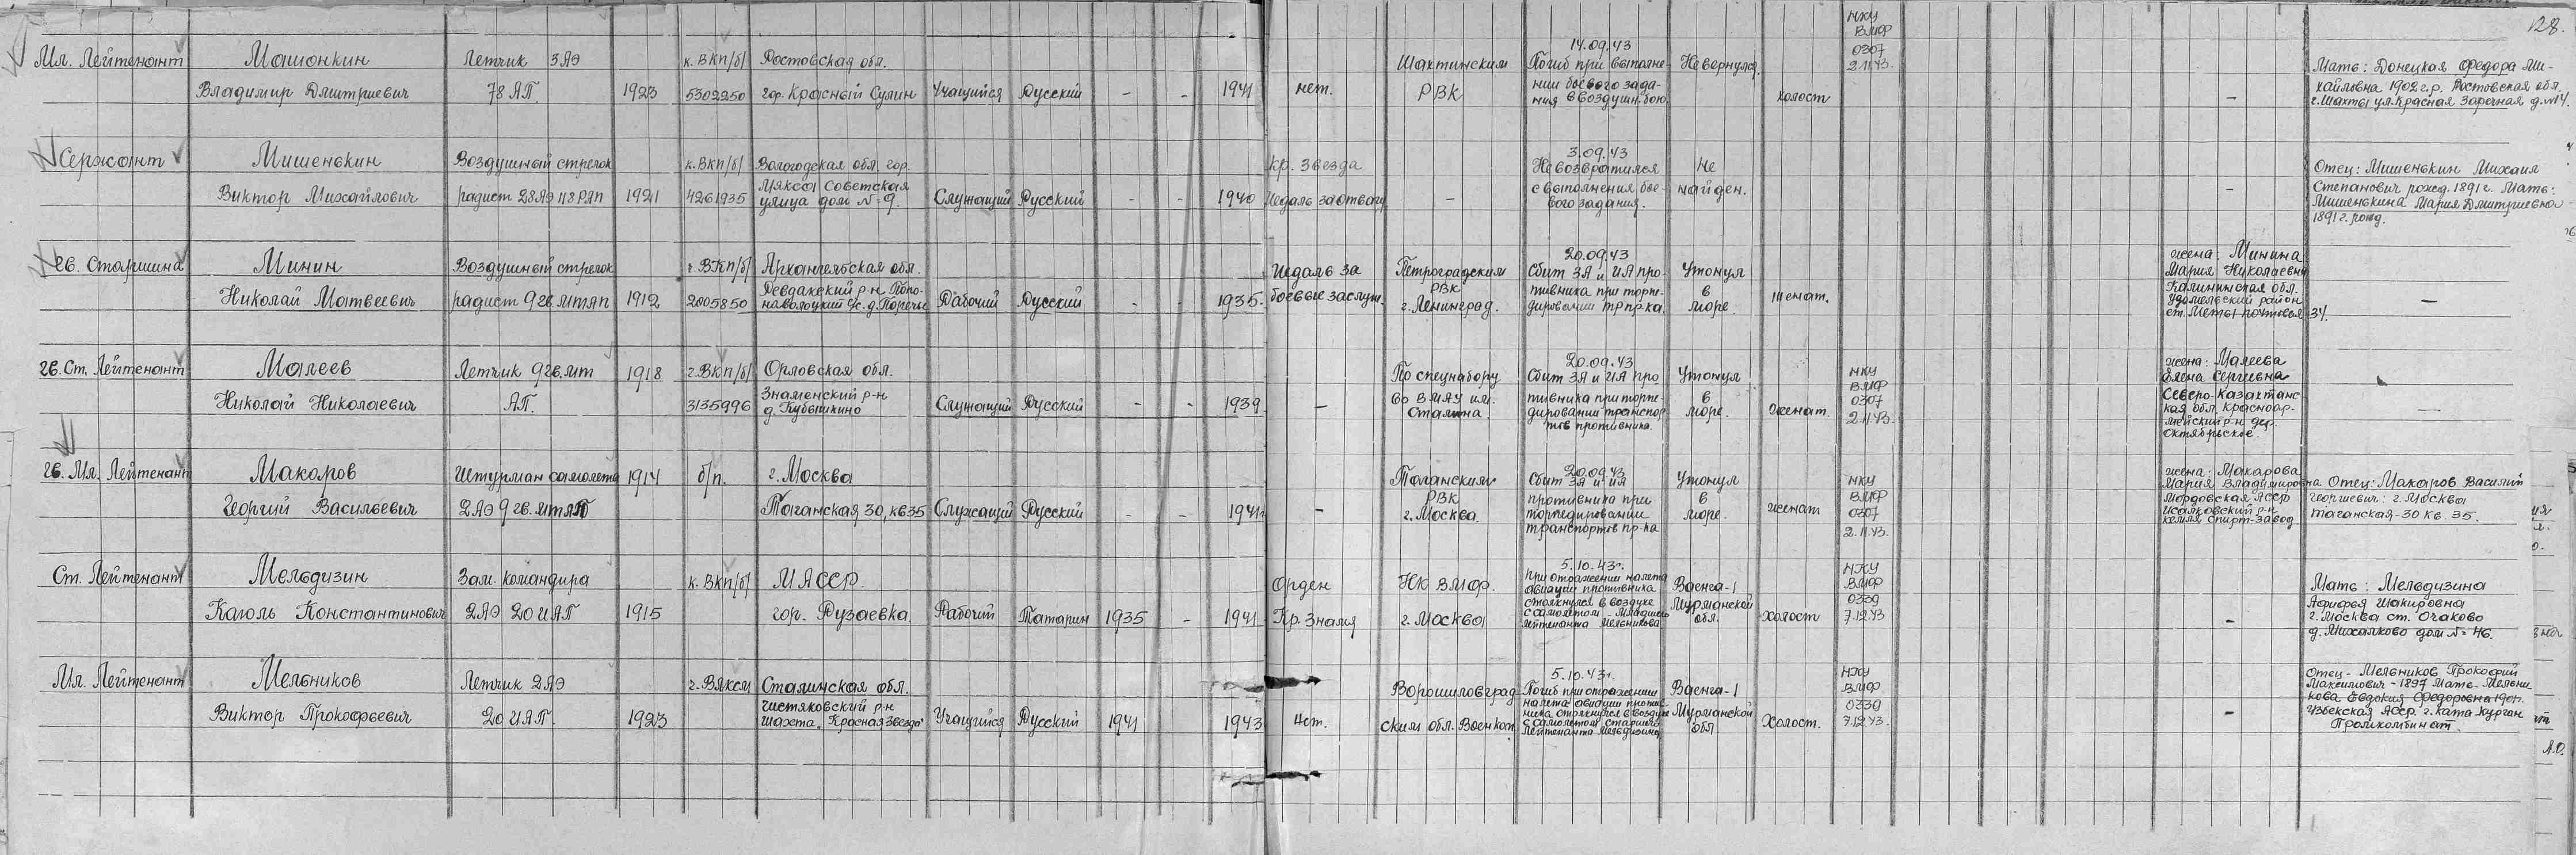 128.
Мл. Лейтенант
Машонкин
Владимир Дмитриевич
Летчик 3АЭ
78 АП.
1923
к. ВКП/б/
5302250
Ростовская обл.
гор. Красный Сулин
Учащийся
Русский
-
-
1941
нет.
Шахтинским
РВК
14.09.43
Погиб при выполне-
нии боевого зада-
ния в воздушн. бою
Не вернулся.
холост
НКУ
ВМФ
0307
2.11.43.
-
Мать: Донецкая Федора Ми-
хайловна 1902 г.р. Ростовская обл.
г. Шахты ул. Красная Заречная д.№14.
Сержант
Мишенькин
Виктор Михайлович
Воздушный стрелок
радист 28АЭ 118 РАП
1921
к. ВКП/б/
4261935
Вологодская обл. гор.
Мякса Советская
улица дом №9.
Служащий
Русский
-
-
1940
кр. Звезда
Медаль за Отвагу
-
3.09.43
Не возвратился
с выполнения бое-
вого задания.
Не
найден.
-
Отец: Мишенькин Михаил
Степанович рожд. 1891 г. Мать:
Мишенькина Мария Дмитриевна
1891 г. рожд.
Гв. Старшина
Минин
Николай Матвеевич
Воздушный стрелок
радист 9 гв. МТАП
1912
ч. ВКП/б/
2005850
Архангельская обл.
наволоцкий с/с. д. Поречье
Рабочий
Русский
-
-
1935.
Медаль за
боевые заслуг.
Петроградским
РВК
г. Ленинград.
20.09.43
Сбит ЗА и ИА про-
тивника при торпе-
дировании тр пр-ка.
Утонул
в
море.
женат.
жена: Минина
Мария Николаевна
Калининская обл.
Удомельский район
ст. Мста почтовая 34.
-
Гв. Ст. Лейтенант
Малеев
Николай Николаевич
Летчик 9 гв. МТ
АП.
1918
ч. ВКП/б/
3135996
Орловская обл.
Знаменский р-н
Служащий
Русский
-
-
1939
-
По спецнабору
во ВМАУ им.
Сталина.
20.09.43
Сбит ЗА и ИА про
тивника при торпе-
дировании транспор
тов противника.
Утонул
в
море.
женат.
НКУ
ВМФ
0307
2.11.43.
жена: Малеева
Елена Сергеевна
Северо-Казахтанс
кая обл. Красноар-
мейский р-н дер.
Октябрьское.
-
Гв. Мл. Лейтенант
Макаров
Георгий Васильевич
Штурман самолета
2АЭ 9 гв. МТАП
1914
б/п.
г. Москва
Таганская 30, кв 35
Служащий
Русский
-
-
1941
-
Таганским
РВК
г. Москва.
20.09.43
Сбит ЗА и ИА
противника при
торпедировании
транспортов пр-ка
Утонул
в
море.
женат
НКУ
ВМФ
0307
2.11.43.
жена: Макарова
Мария Владимировна
Мордовская АССР
спирт-завод
Отец: Макаров Василий
Георгиевич: г. Москва
Таганская-30 кв. 35.
Ст. Лейтенант
Мельдизин
Каголь Константинович
Зам. командира
2АЭ 20 ИАП
1915
к. ВКП/б/
МАССР
гор. Рузаевка.
Рабочий
Татарин
1935
-
1941
Орден
Кр. Знамя
НК ВМФ.
г. Москва
5.10.43г.
При отражении налета
авиации противника
столкнулся в воздухе
с самолетом - Младшего
лейтенанта Мельникова
Ваенга-1
Мурманской
обл.
Холост
НКУ
ВМФ
0339
7.12.43
-
Мать: Мельдизина
Шакировна
г. Москва ст. Очаково
д. Михалково дом №46.
Мл. Лейтенант
Мельников
Виктор Прокофьевич
Летчик 2АЭ
20 ИАП.
1923
ч. ВЛКСМ
Сталинская обл.
Чистяковский р-н
шахта. Красная Звезда
Учащийся
Русский
1941
-
1943
нет.
Ворошиловград
ским обл. Военком.
5.10.43г.
Погиб при отражении
налета авиации против-
ника столкнулся в воздухе
с самолетом старшего
лейтенанта Мельдизина
Ваенга-1
Мурманской
обл.
Холост.
НКУ
ВМФ
0339
7.12.43.
-
Отец - Мельников Прокофий
Максимович - 1897 Мать - Мельни
кова Евдокия Федоровна 1901г.
Узбекская АССР. г. Ката-Курган
Промкомбинат.